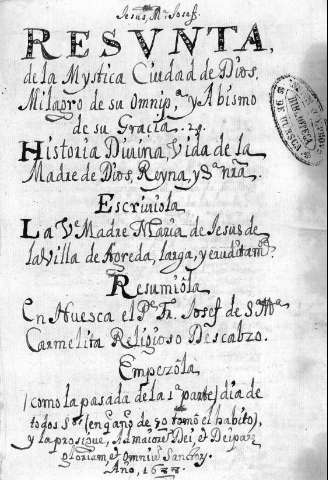 Jesus, Mª Josef.
RESVNTA,
de la Mystica Ciudad de Dios,
Milagro de su Omnip.ª y Abismo
de su Gracia.
Historia Diuina, Vida de la
Madre de Dios, Reyna, y Sª nrã.
Escriuiola
La Vᵉ Madre Maria de Jesus de
la Villa de Agreda, larga, y
Resumiòla
En Huesca el Pᵉ Fr. Josef de Sᵗᵃ
Carmelita Religioso Descalzo.
Empezòla
(como la pasada de la 1ª parte) dia de
todos Sᵗᵒˢ (en q̃ año de 70 tomò el habito),
y la prosigue, Ad maiorẽ Dei, et Deiparę
gloriam, et omniũ Sanctorũ.
Año, 1688.